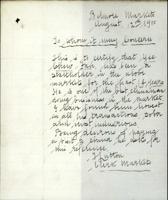 Belmore Markets
August 2nd 1900
To whom it may concern
This is to certify that Gee
has been a
stallholder in the above
markets for the past 8 years
He is one of the best chinaman
doing business in the market
& I have found him honest in
all his transactions sober
and most industrious
Being desirous of paying
a visit to China he asks for
this reference
Clerk Markets